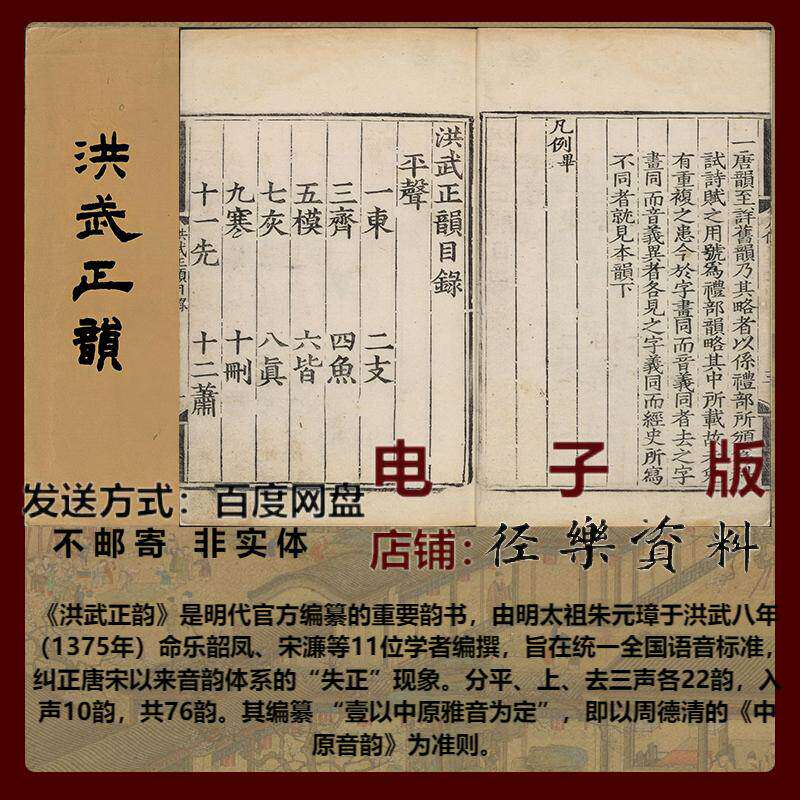 洪武正韻
一唐韻至詳舊韻乃其略者以係禮部所頒
試詩賦之用號爲禮部韻略其中所載故
有重複之患今於字畫同而音義同者去之字
畫同而音義異者各見之字義同而經史所寫
不同者就見本韻下
凡例畢
洪武正韻目錄
平聲
一東 二支
三齊 四魚
五模 六皆
七灰 八眞
九寒 十刪
十一先 十二蕭
洪武正韻目錄
电子版
发送方式：百度网盘
不邮寄 非实体
店铺：径樂資料
《洪武正韵》是明代官方编纂的重要韵书，由明太祖朱元璋于洪武八年
（1375年）命乐韶凤、宋濂等11位学者编撰，旨在统一全国语音标准，
纠正唐宋以来音韵体系的“失正”现象。分平、上、去三声各22韵，入
声10韵，共76韵。其编纂 “壹以中原雅音为定”，即以周德清的《中
原音韵》为准则。